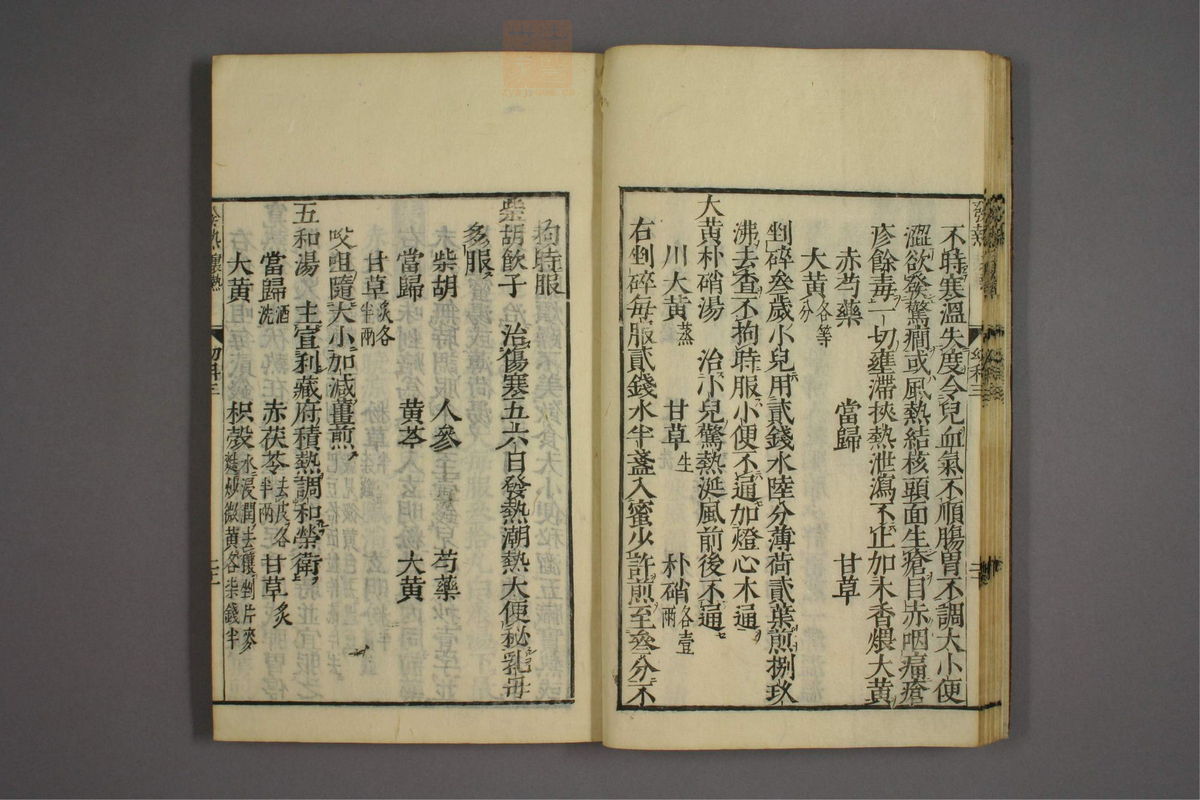 不時寒溫失度令兒血氣不順腸胃不調大小便
澀欲發驚癇或風熱結核頭面生瘡目赤咽痛瘡
疹餘毒一切壅滯挾熱泄瀉不止加木香煨大黃
赤芍藥 當歸 甘草
大黃各等分
剉碎叄歲小兒用貳錢水陸分薄荷貳葉煎捌玖
沸去查不拘時服小便不通加燈心木通
大黃朴硝湯 治小兒驚熱涎風前後不通
川大黃蒸 甘草生 朴硝各壹兩
右剉碎每服貳錢水半盞入蜜少許煎至叄分不
拘時服
柴胡飲子 治傷寒五六日發熱潮熱大便秘乳母
多服
柴胡 人參 芍藥
當歸 黃芩 大黃
甘草炙各半兩
㕮咀隨大小加減薑煎
五和湯 主宣利藏府積熱調和榮衛
當歸酒洗 赤茯苓去皮各半兩 甘草炙
大黃 枳殼水浸潤去穰剉片麥麩炒微黃各柒錢半